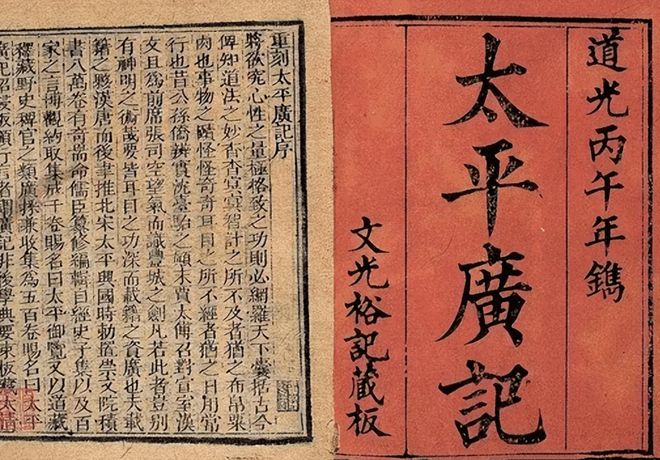 道光丙午年鐫
太平廣記
文光裕記藏板
重刻太平廣記序
將欲窮心性之量極格致之功則必網羅天下囊括古今
俾知道法之妙杳杳冥冥智計之所不及者猶之布帛粟
肉也事物之賾怪怪奇奇耳目之所不經者猶之日用常
行也昔公孫僑辨實沈臺駘之顛末賈太傅召對宣室漢
文且為前席張司空望氣而識豐城之劍凡若此者豈別
有神明之術哉要皆耳目之功深而載籍之資廣也夫載
籍之夥漢唐而後聿推北宋太平興國時勅置學文院積
書八萬卷有奇耑命儒臣纂修編輯自經史子集以及百
家之言博觀納取集成千卷賜名曰太平御覽又以道藏
釋藏野史稗官之類廣採兼收集為五百卷賜名曰太平
廣記詔板頒行言者謂廣記非後學典要束板太清